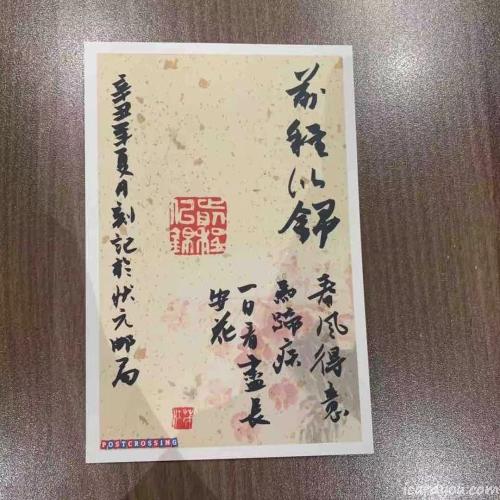 前程似錦
春风得意
馬蹄疾
一日看盡長
安花
前程
似錦
辛丑年夏月刻記於状元邮局
POSTCROSSING
icardyou.com